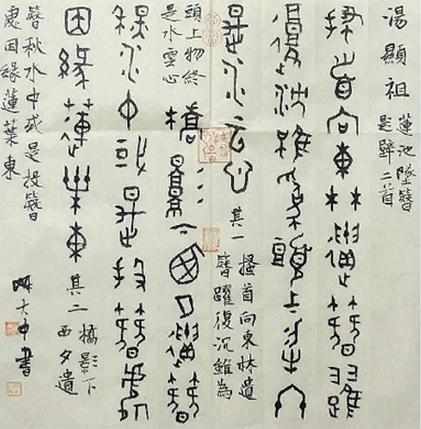 湯顯祖
蓮池墜簪
題壁二首
搔首向東林遺簪躍
復沉雖為頭上物
終是水雲心
其一
搔首向東林遺
簪躍復沉雖為
頭上物終
是水雲心
橋影下西夕遺簪
秋水中或是投簪處
因緣蓮葉東
其二
橋影下
西夕遺
簪秋水中或是投簪
處因緣蓮葉東
大中書